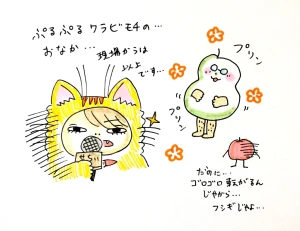 ぷるぷる クラビモチの…
おなか…
現場からは
以上
です…
プリン
プリン
だのに…
ゴロゴロ 転がるん
じゃから…
フシギじゃよ…